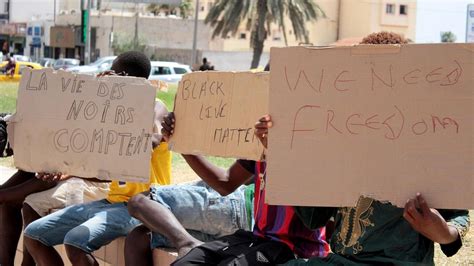 LA VIE DES
NOIRS
COMPTENT
BLACK
LIVE
MATTER
WE NEED
FREEDOM